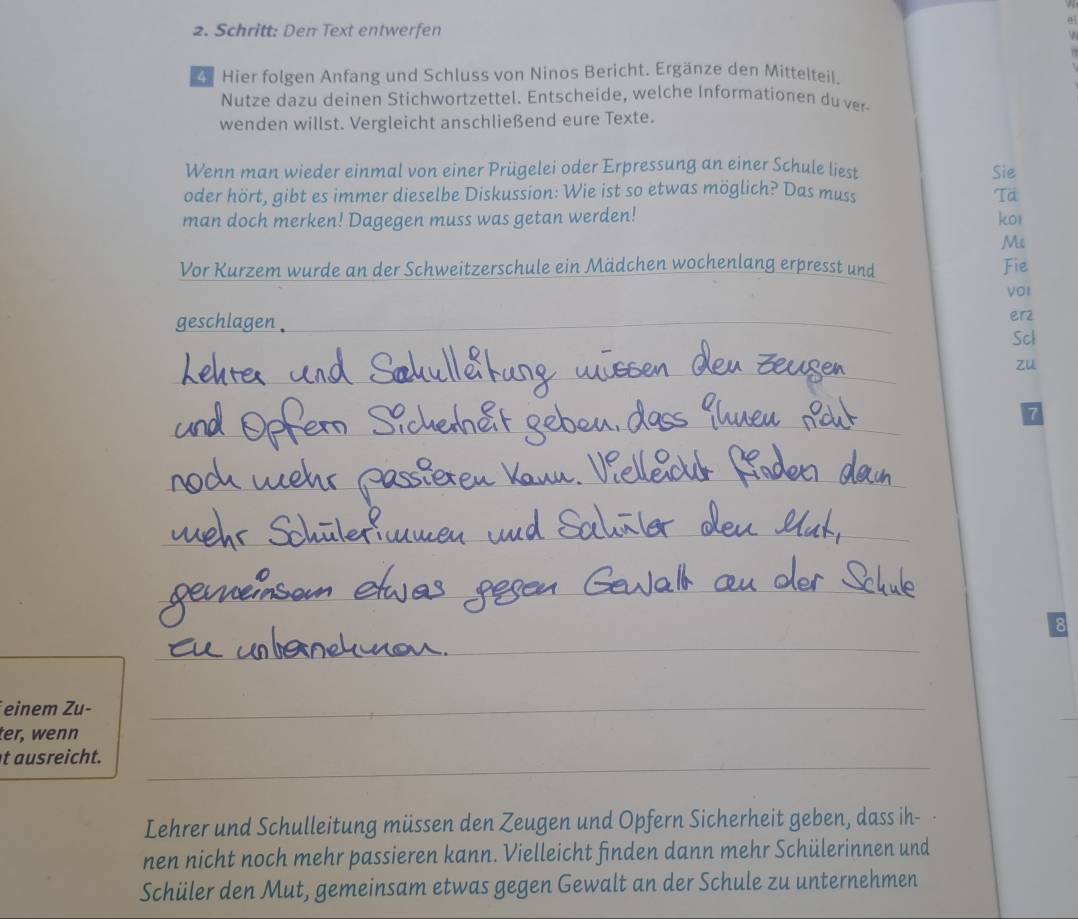 2. Schritt: Den Text entwerfen
4 Hier folgen Anfang und Schluss von Ninos Bericht. Ergänze den Mittelteil.
Nutze dazu deinen Stichwortzettel. Entscheide, welche Informationen du ver-
wenden willst. Vergleicht anschließend eure Texte.
Wenn man wieder einmal von einer Prügelei oder Erpressung an einer Schule liest
oder hört, gibt es immer dieselbe Diskussion: Wie ist so etwas möglich? Das muss
man doch merken! Dagegen muss was getan werden!
Vor Kurzem wurde an der Schweitzerschule ein Mädchen wochenlang erpresst und
geschlagen.
Lehrer und Schulleitung müssen den Zeugen
und Opfern Sicherheit geben, dass ihnen nicht
noch mehr passieren kann. Vielleicht finden dann
mehr Schülerinnen und Schüler den Mut,
gemeinsam etwas gegen Gewalt an der Schule
zu unternehmen.
einem Zu-
ter, wenn
t ausreicht.
Lehrer und Schulleitung müssen den Zeugen und Opfern Sicherheit geben, dass ih-
nen nicht noch mehr passieren kann. Vielleicht finden dann mehr Schülerinnen und
Schüler den Mut, gemeinsam etwas gegen Gewalt an der Schule zu unternehmen
Sie
Tä
kor
Me
Fie
vor
erz
Sch
zu
7
8